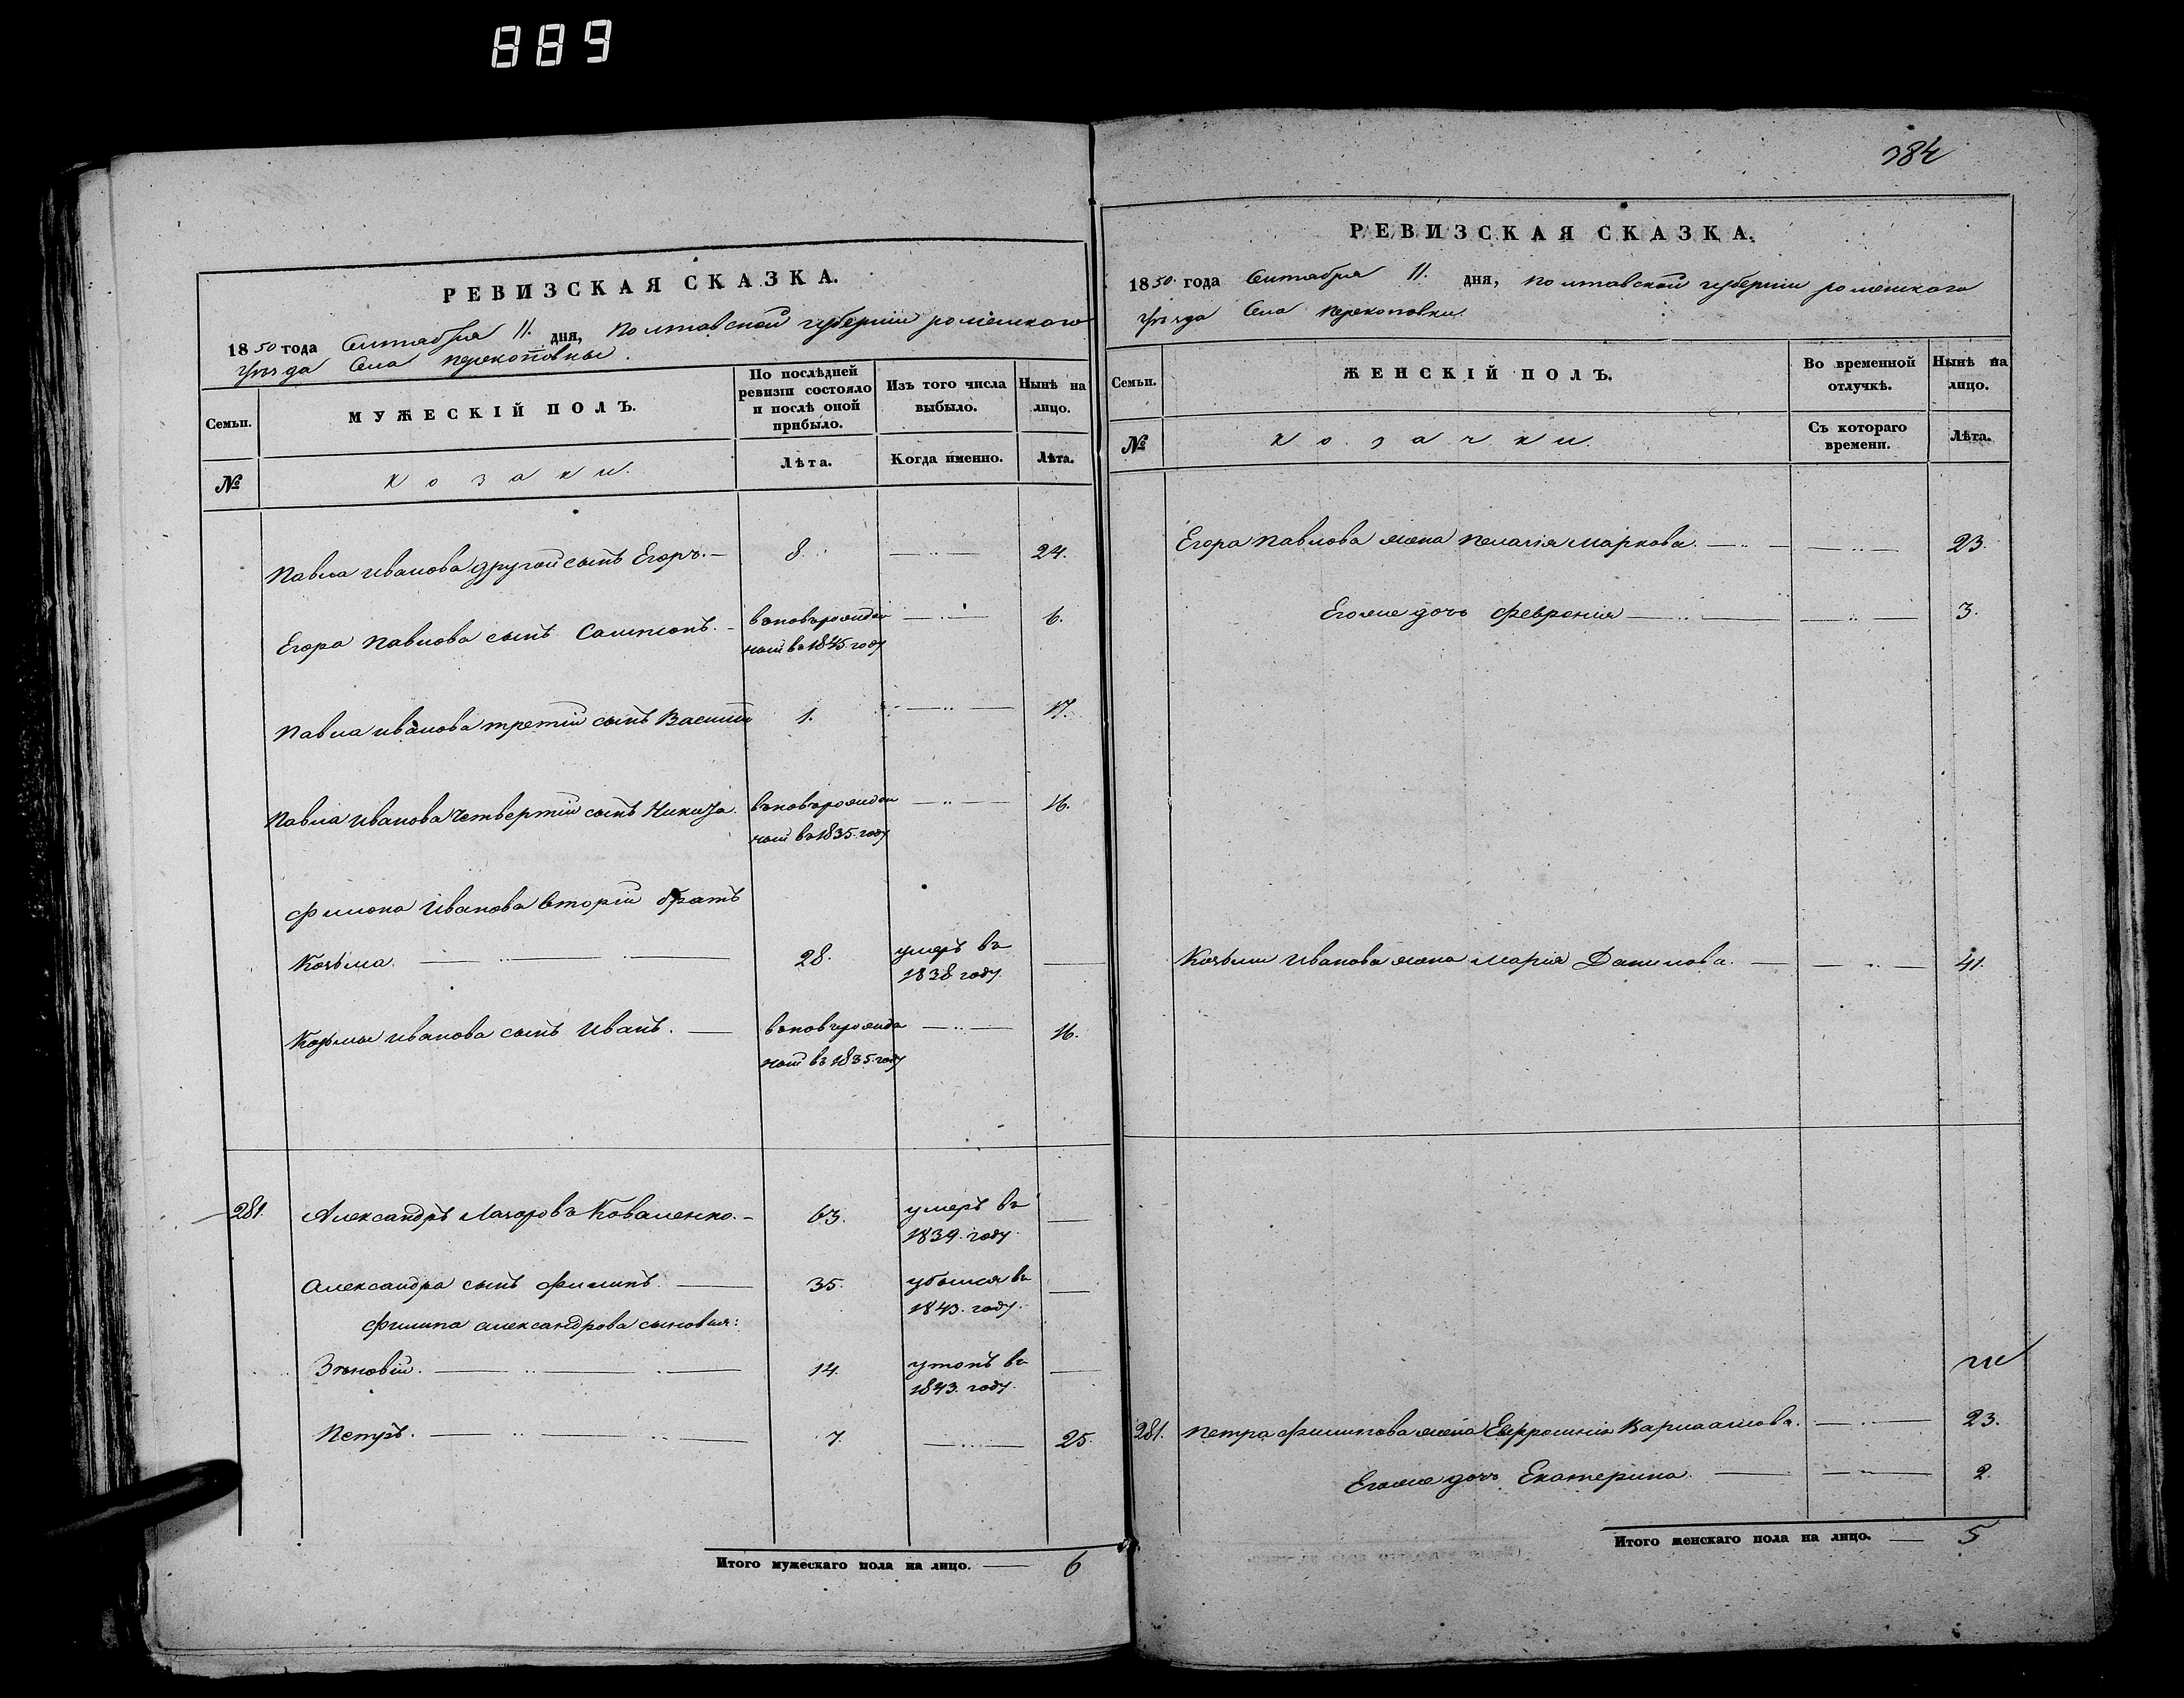 889
РЕВИЗСКАЯ СКАЗКА.
1850 года Сентября 11. дня, Полтавской губернии роменского
уѣзда Села Перекоповки.
Семьи.
МУЖЕСКІЙ ПОЛЪ.
По послѣдней ревизіи состояло и послѣ оной прибыло.
Изъ того числа выбыло.
Нынѣ на лицо.
№
козаки.
Лѣта.
Когда именно.
Лѣта.
Павла Иванова другой сынъ Егоръ. 8 24.
Егора Павлова сынъ Сампсонъ. 6.
въ 1845 году
Павла Иванова третій сынъ Василій 1. 17.
Павла Иванова четвертій сынъ Никита. 16.
въ 1835 году
Филона Иванова вторій братъ
Козьма. 28. умеръ въ
1838 году.
Козьмы Иванова сынъ Иванъ. 16.
въ 1835 году
281. Александръ Лазаровъ Коваленко. 63. умеръ въ
1839. году.
Александра сынъ Филипъ. 35. убылся въ
1843. году.
Филипа Александрова сыновья:
Зѣновій. 14. утопъ въ
1843. году.
Петръ. 7. 25.
Итого мужескаго пола на лицо. 6
384
РЕВИЗСКАЯ СКАЗКА.
1850 года Сентября 11. дня, Полтавской губернии роменского
уѣзда Села Перекоповки.
Семьи.
ЖЕНСКІЙ ПОЛЪ.
Во временной отлучкѣ.
Нынѣ на лицо.
№
козачки.
Съ котораго времени.
Лѣта.
Егора Павлова жена Пелагія Маркова. 23.
Его же дочь Феврония 3.
Козьми Иванова жена Марія Данилова. 41.
281. Петра Филипова жена Евфросинія Варлаамова. 23.
Его же дочь Екатерина. 2.
Итого женскаго пола на лицо. 5